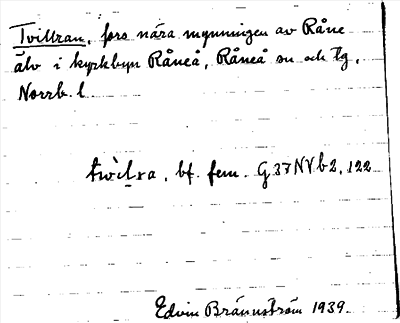 Tvittran, fors nära mynningen av Råne
älv i kyrkbyn Råneå, Råneå sn och tg,
Norrb. l.
bf. fem. G 37 NV b 2, 122
Edvin Brännström 1939.